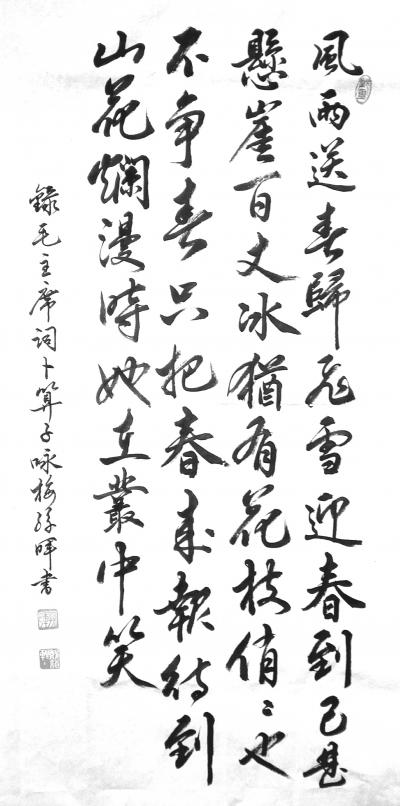 風雨送春歸飛雪迎春到已是
懸崖百丈冰猶有花枝俏〻也
不争春只把春来報待到
山花爛漫時她在叢中笑
錄毛主席詞卜算子咏梅孫暉書